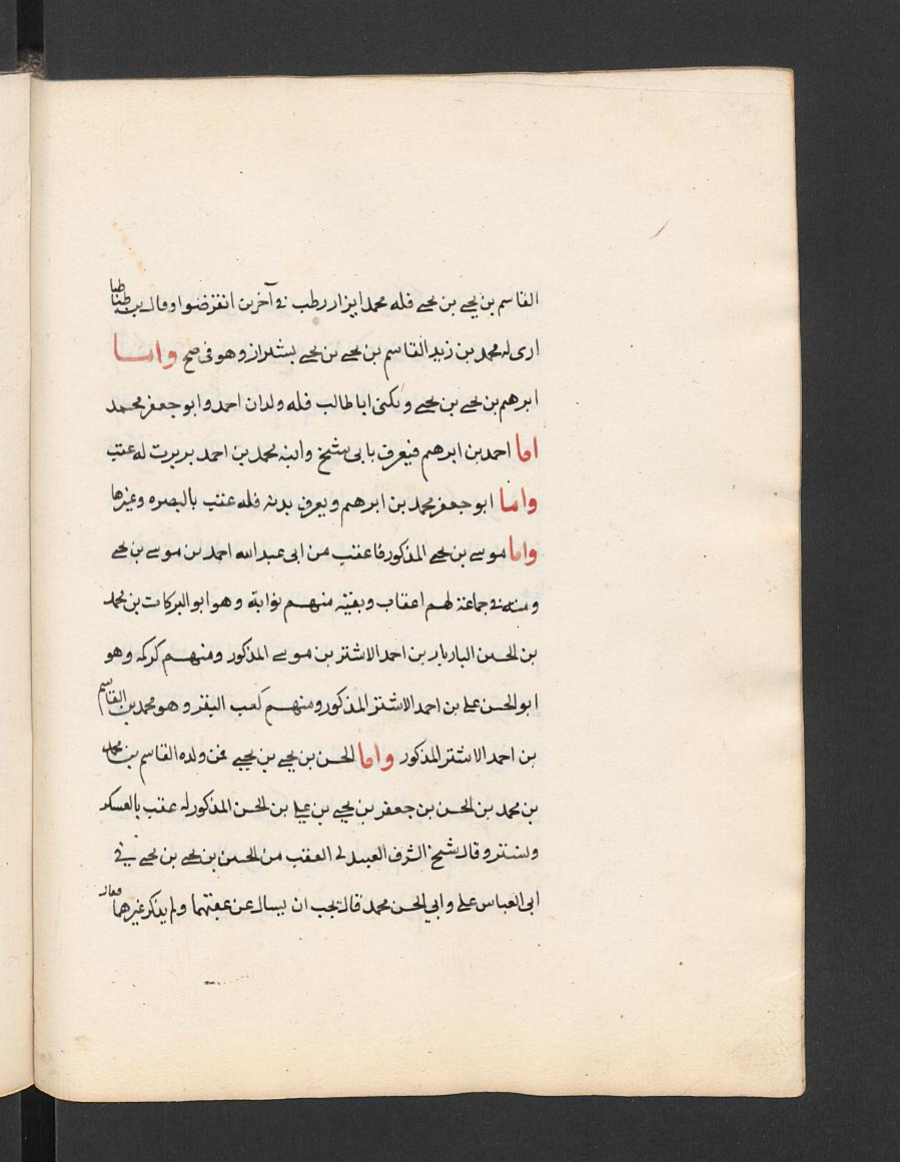 القاسم بن يحيى بن يحيى فله محمد ابزار رطب في آخرين انقرضوا وقال بن طباطبا
ارى له محمد بن زيد القاسم بن يحيى بن يحيى بشيراز وهو في صح واما
ابرهيم بن يحيى بن يحيى ويكنى ابا طالب فله ولدان احمد وابو جعفر محمد
اما احمد بن ابرهيم فيعرف بابي شيخ وابنه محمد بن احمد له عقب
واما ابو جعفر محمد بن ابرهيم ويعرف فله عقب بالبصره وغيرها
واما موسى بن يحيى المذكور فاعقب من ابى عبد الله احمد بن موسى بن يحيى
ومنه في جماعة لهم اعقاب وبقيه منهم نوابة وهو ابو البركات بن محمد
بن الحسن البازيار بن احمد الاشتر بن موسى المذكور ومنهم كركه وهو
ابو الحسن على بن احمد الاشتر المذكور ومنهم كعب البقر وهو محمد بن القاسم
بن احمد الاشتر المذكور واما الحسن بن يحيى بن يحيى فمن ولده القاسم بن محمد
بن محمد بن الحسن بن جعفر بن يحيى بن علي بن الحسن المذكور له عقب بالعسكر
وتستر وقال شيخ الشرف العبيدلى العقب من الحسن بن يحيى بن يحيى في
ابى العباس على وابي الحسن محمد قال يجب ان يسال عن عقبهما ولم يذكر غيرهما